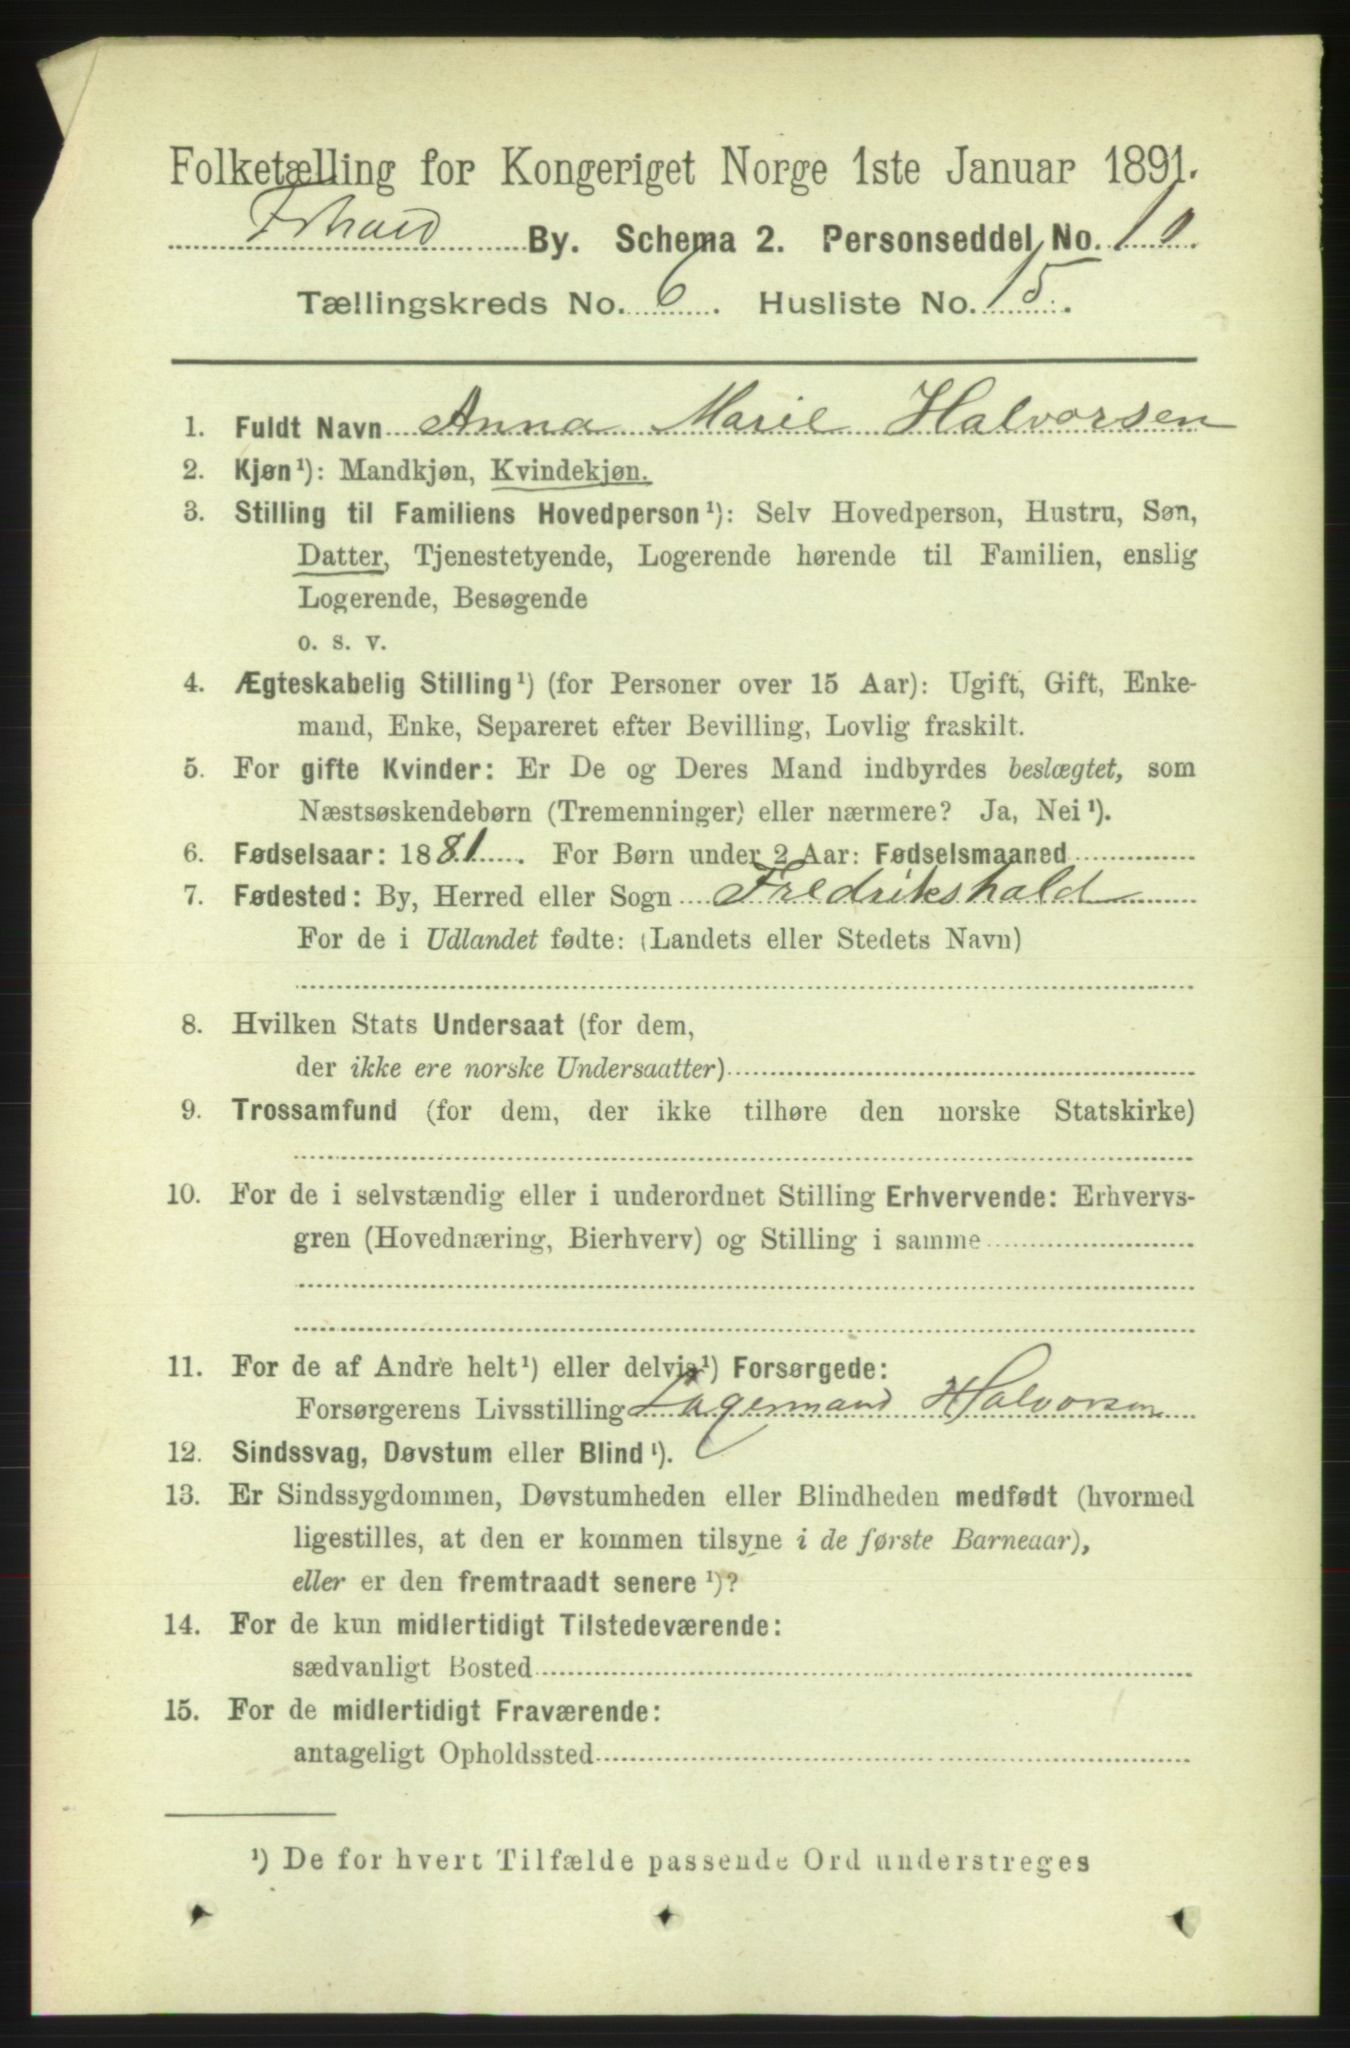 Folketælling for Kongeriget Norge 1ste Januar 1891.
Frhald By. Schema 2. Personseddel No. 10
Tællingskreds No. 6. Husliste No. 15.
1. Fuldt Navn Anna Marie Halvorsen
2. Kjøn¹): Mandkjøn, Kvindekjøn.
3. Stilling til Familiens Hovedperson¹): Selv Hovedperson, Hustru, Søn,
Datter, Tjenestetyende, Logerende hørende til Familien, enslig
Logerende, Besøgende
o. s. v.
4. Ægteskabelig Stilling¹) (for Personer over 15 Aar): Ugift, Gift, Enke-
mand, Enke, Separeret efter Bevilling, Lovlig fraskilt.
5. For gifte Kvinder: Er De og Deres Mand indbyrdes beslægtet, som
Næstsøskendebørn (Tremenninger) eller nærmere? Ja, Nei¹).
6. Fødselsaar: 1881. For Børn under 2 Aar: Fødselsmaaned
7. Fødested: By, Herred eller Sogn Fredrikshald
For de i Udlandet fødte: (Landets eller Stedets Navn)
8. Hvilken Stats Undersaat (for dem,
der ikke ere norske Undersaatter)
9. Trossamfund (for dem, der ikke tilhøre den norske Statskirke)
10. For de i selvstændig eller i underordnet Stilling Erhvervende: Erhvervs-
gren (Hovednæring, Bierhverv) og Stilling i samme
11. For de af Andre helt¹) eller delvis¹) Forsørgede:
Forsørgerens Livsstilling Lagermand Halvorsen
12. Sindssvag, Døvstum eller Blind¹).
13. Er Sindssygdommen, Døvstumheden eller Blindheden medfødt (hvormed
ligestilles, at den er kommen tilsyne i de første Barneaar),
eller er den fremtraadt senere¹)?
14. For de kun midlertidigt Tilstedeværende:
sædvanligt Bosted
15. For de midlertidigt Fraværende:
antageligt Opholdssted
¹) De for hvert Tilfælde passende Ord understreges